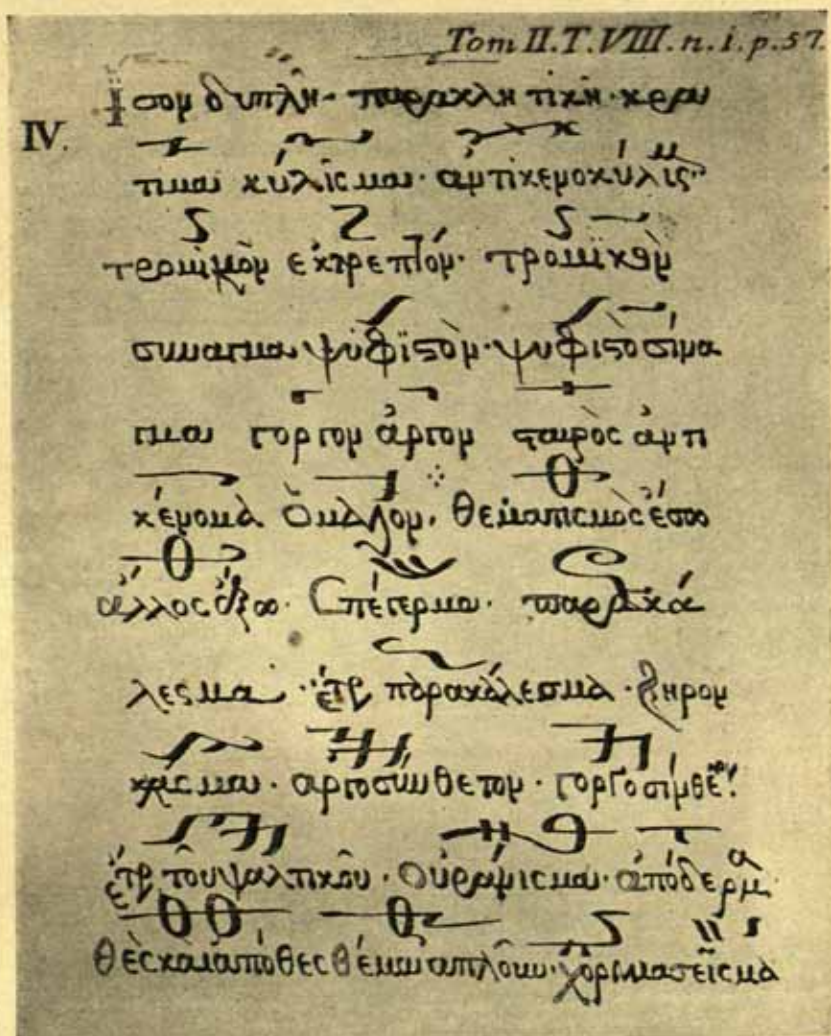 Tom II.T.VIII.n.i.p.57.
ἶσον διπλῆ· παρακλητικὴ· κρα
IV.
τιμαι κύλισμαι· ἀντικενοκύλισ·
τρομικὸν ἐκτρεπτόν· τρομικὸν
σιναγμα ψυφϊστὸν· ψυφιστὸσίνα
γμαι γοργον ἀργον σταυρὸς ἀντι
κένομὰ ὁμαλον· θεματισμὸς ἔσω
ἄλλος ἔξω· ἐπέγερμα· παρακά
λεσμα· ἔτρ παρακάλεσμα· ξηρον
κλίσμαι· ἀργοσύνθετον· γοργοσίνθε
ἔτρ τοῦ ψαλτικοῦ· οὐράνισμαι· ἀπόδερμα
θὲς καὶ ἀπόθες θέμα ἁπλοῦν· χόρευμα σεῖσμα